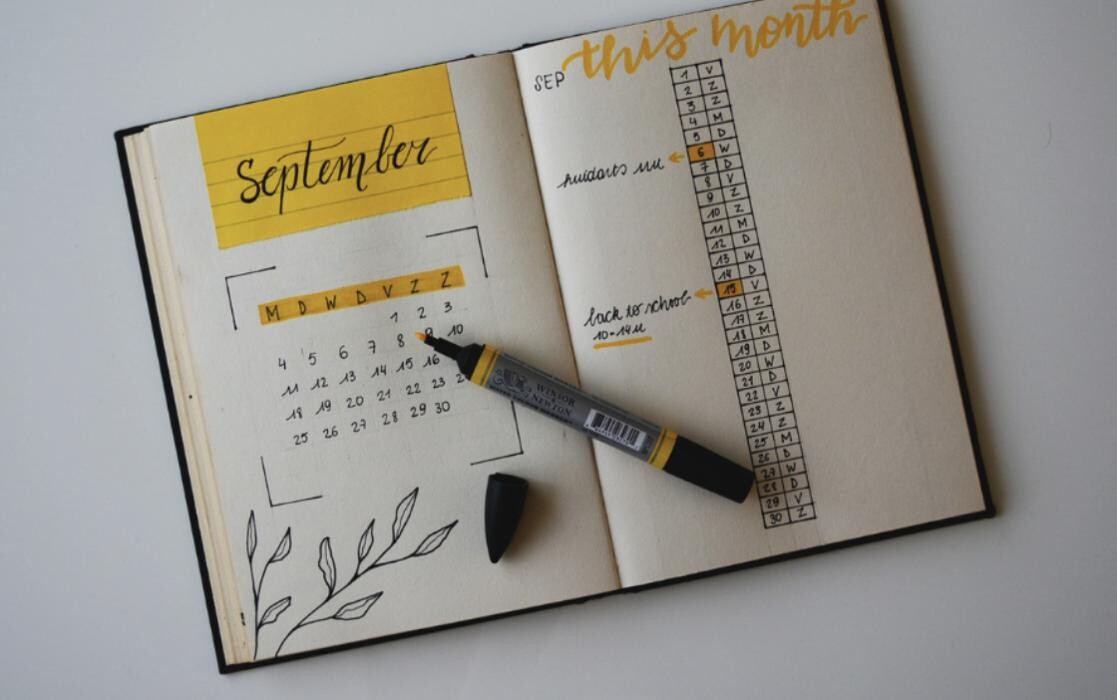 September
M D W D V Z Z
1 2 3
4 5 6 7 8 9 10
11 12 13 14 15 16
18 19 20 21 22 23 2
25 26 27 28 29 30
WINSOR
& NEWTON
this month
SEP
1 V
2 Z
3 Z
4 M
5 D
6 W
7 D
8 V
9 Z
10 Z
11 M
12 D
13 W
14 D
back to school
10-14u
15 V
16 Z
17 Z
18 M
19 D
20 W
21 D
22 V
23 Z
24 Z
25 M
26 D
27 W
28 D
29 V
30 Z